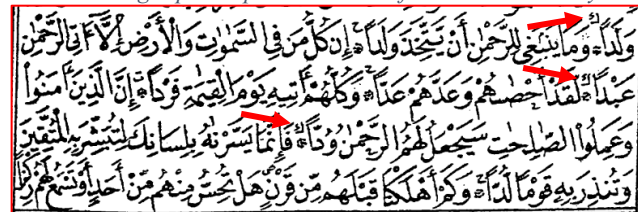 وَلَدًا ۝ وَمَا يَنْبَغِي لِلرَّحْمٰنِ أَنْ يَتَّخِذَ وَلَدًا ۝ إِنْ كُلُّ مَنْ فِي السَّمٰوٰتِ وَالْأَرْضِ إِلَّا أٰتِي الرَّحْمٰنِ
عَبْدًا ۝ لَقَدْ أَحْصٰىهُمْ وَعَدَّهُمْ عَدًّا ۝ وَكُلُّهُمْ أٰتِيهِ يَوْمَ الْقِيٰمَةِ فَرْدًا ۝ إِنَّ الَّذِينَ أٰمَنُوا
وَعَمِلُوا الصّٰلِحٰتِ سَيَجْعَلُ لَهُمُ الرَّحْمٰنُ وُدًّا ۝ فَإِنَّمَا يَسَّرْنٰهُ بِلِسَانِكَ لِتُبَشِّرَ بِهِ الْمُتَّقِينَ
وَتُنْذِرَ بِهِ قَوْمًا لُدًّا ۝ وَكَمْ أَهْلَكْنَا قَبْلَهُمْ مِنْ قَرْنٍ هَلْ تُحِسُّ مِنْهُمْ مِنْ أَحَدٍ أَوْ تَسْمَعُ لَهُمْ رِكْزًا